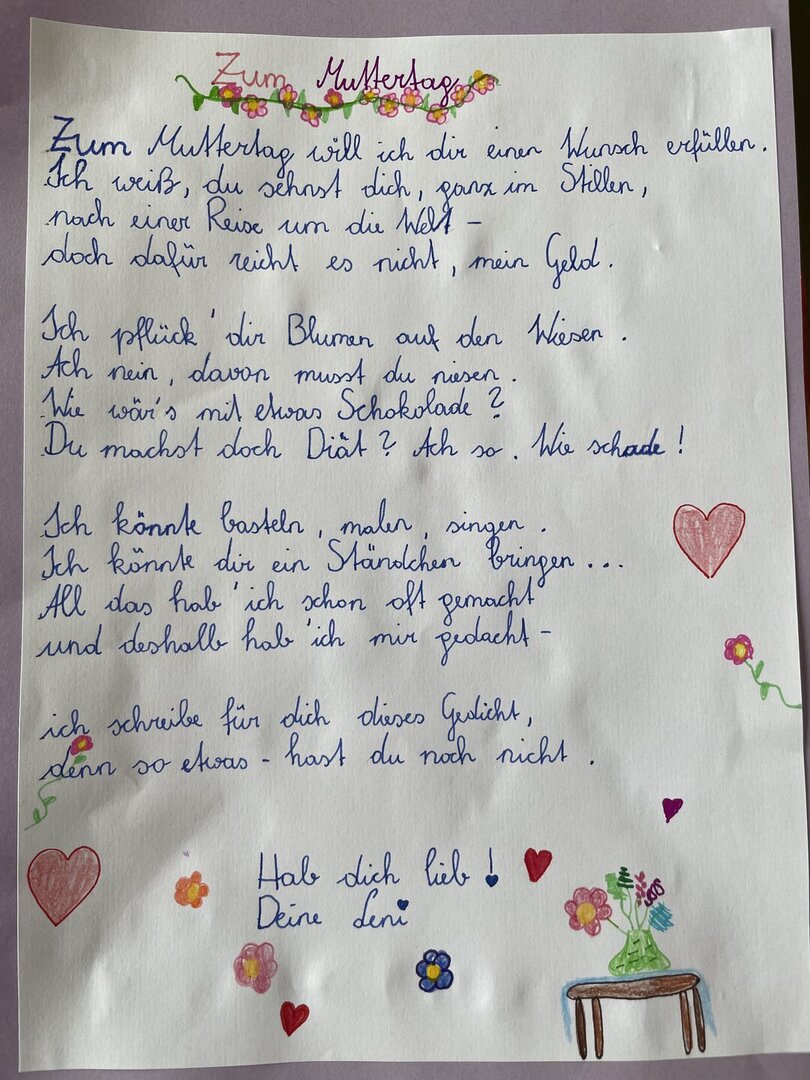 Zum Muttertag
Zum Muttertag will ich dir einen Wunsch erfüllen.
Ich weiß, du sehnst dich, ganz im Stillen,
nach einer Reise um die Welt -
doch dafür reicht es nicht, mein Geld.
Ich pflück' dir Blumen auf den Wiesen.
Ach nein, davon musst du niesen.
Wie wär's mit etwas Schokolade?
Du machst doch Diät? Ach so. Wie schade!
Ich könnte basteln, malen, singen.
Ich könnte dir ein Ständchen bringen...
All das hab' ich schon oft gemacht
und deshalb hab' ich mir gedacht -
ich schreibe für dich dieses Gedicht,
denn so etwas - hast du noch nicht.
Hab dich lieb!
Deine Leni